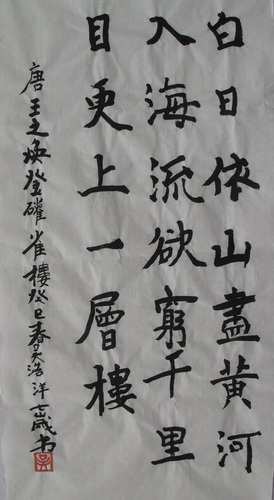 白日依山盡黃河
入海流欲窮千里
目更上一層樓
唐王之渙登鸛雀樓癸巳春天浩洋七歲书